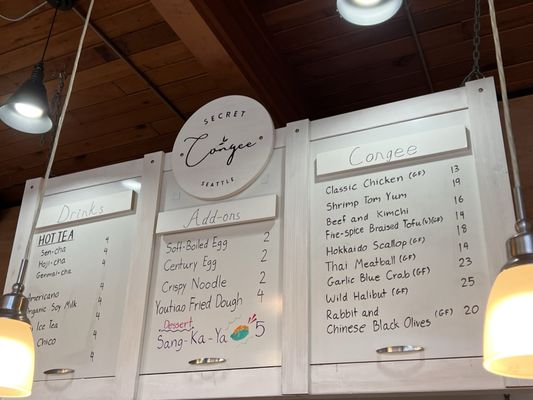 SECRET
Congee
SEATTLE
Drinks
HOT TEA
Sen-cha 4
Hoji-cha 4
Genmai-cha 4
Americano 4
Organic Soy Milk 4
Ice Tea 4
Chico 4
Add-ons
Soft-Boiled Egg 2
Century Egg 2
Crispy Noodle 2
Youtiao Fried Dough 4
Dessert
Sang-Ka-Ya 5
Congee
Classic Chicken (GF) 13
Shrimp Tom Yum 19
Beef and Kimchi 16
Five-spice Braised Tofu (V)(GF) 14
Hokkaido Scallop (GF) 18
Thai Meatball (GF) 14
Garlic Blue Crab (GF) 23
Wild Halibut (GF) 25
Rabbit and (GF) 20
Chinese Black Olives